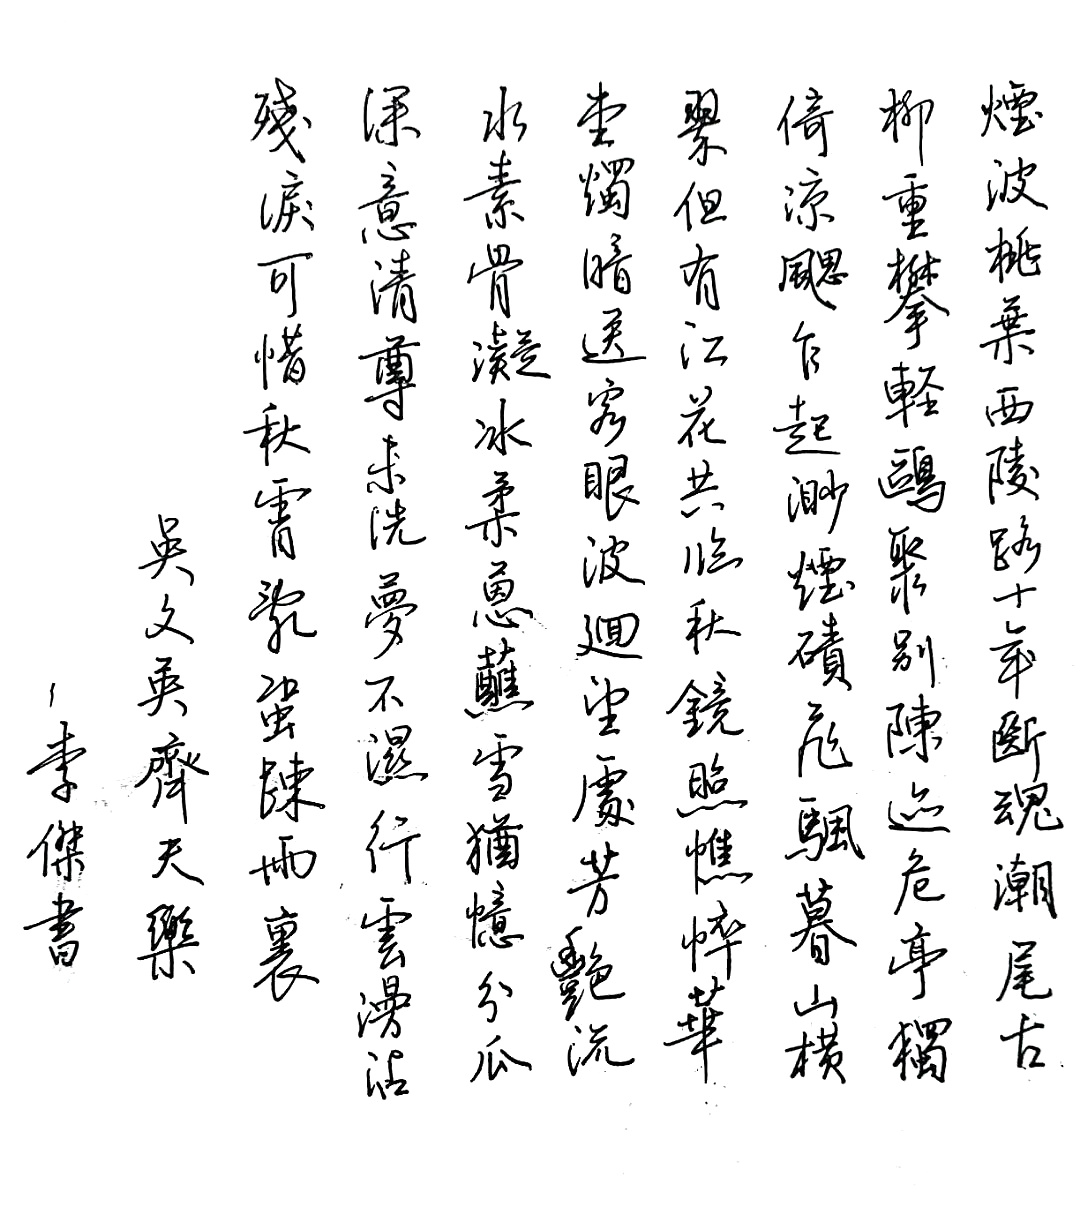 煙波桃葉西陵路十年斷魂潮尾古
柳重攀輕鷗聚別陳迹危亭獨
倚涼颸乍起渺煙磧飛颿暮山橫
翠但有江花共臨秋鏡照憔悴華
堂燭暗送客眼波迴望處芳艷流
水素骨凝冰柔蔥蘸雪猶憶分瓜
深意清尊未洗夢不濕行雲漫沾
殘淚可惜秋宵亂蛩疎雨裏
吳文英齊天樂
李傑書